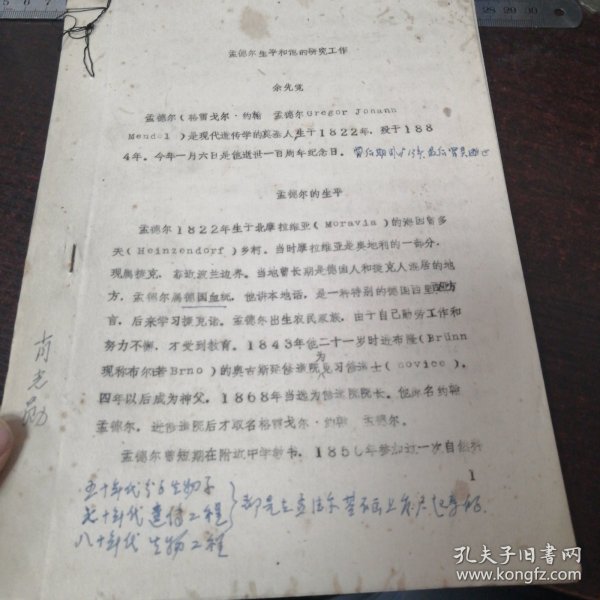 孟德尔生平和他的研究工作
余先觉
孟德尔(格雷戈尔·约翰 孟德尔Gregor Johann
Mendel)是现代遗传学的奠基人生于1822年,殁于188
4年。今年一月六日是他逝世一百周年纪念日。
孟德尔的生平
孟德尔1822年生于北摩拉维亚(Moravia)的海因曾多
夫(Heinzendorf)乡村。当时摩拉维亚是奥地利的一部分,
现属捷克,靠近波兰边界。当地曾长期是德国人和捷克人混居的地
方,孟德尔属德国血统,他讲本地话,是一种特别的德国西里西亚方
言,后来学习捷克语。孟德尔出生农民家族,由于自己勤劳工作和
努力不懈,才受到教育。1843年他二十一岁时进布隆(Brünn
现称布尔诺Brno)的奥古斯廷修道院为见习修道士(novice),
四年以后成为神父,1868年当选为修道院院长。他原名约翰
孟德尔,进修道院后才取名格雷戈尔·约翰 孟德尔。
孟德尔曾短期在附近中学教书,1850年参加过一次自然科
1
五十年代分子生物学
六十年代 遗传工程
八十年代 生物工程
都是在孟德尔
肖光勋
孔夫子旧书网
www.kongfz.com